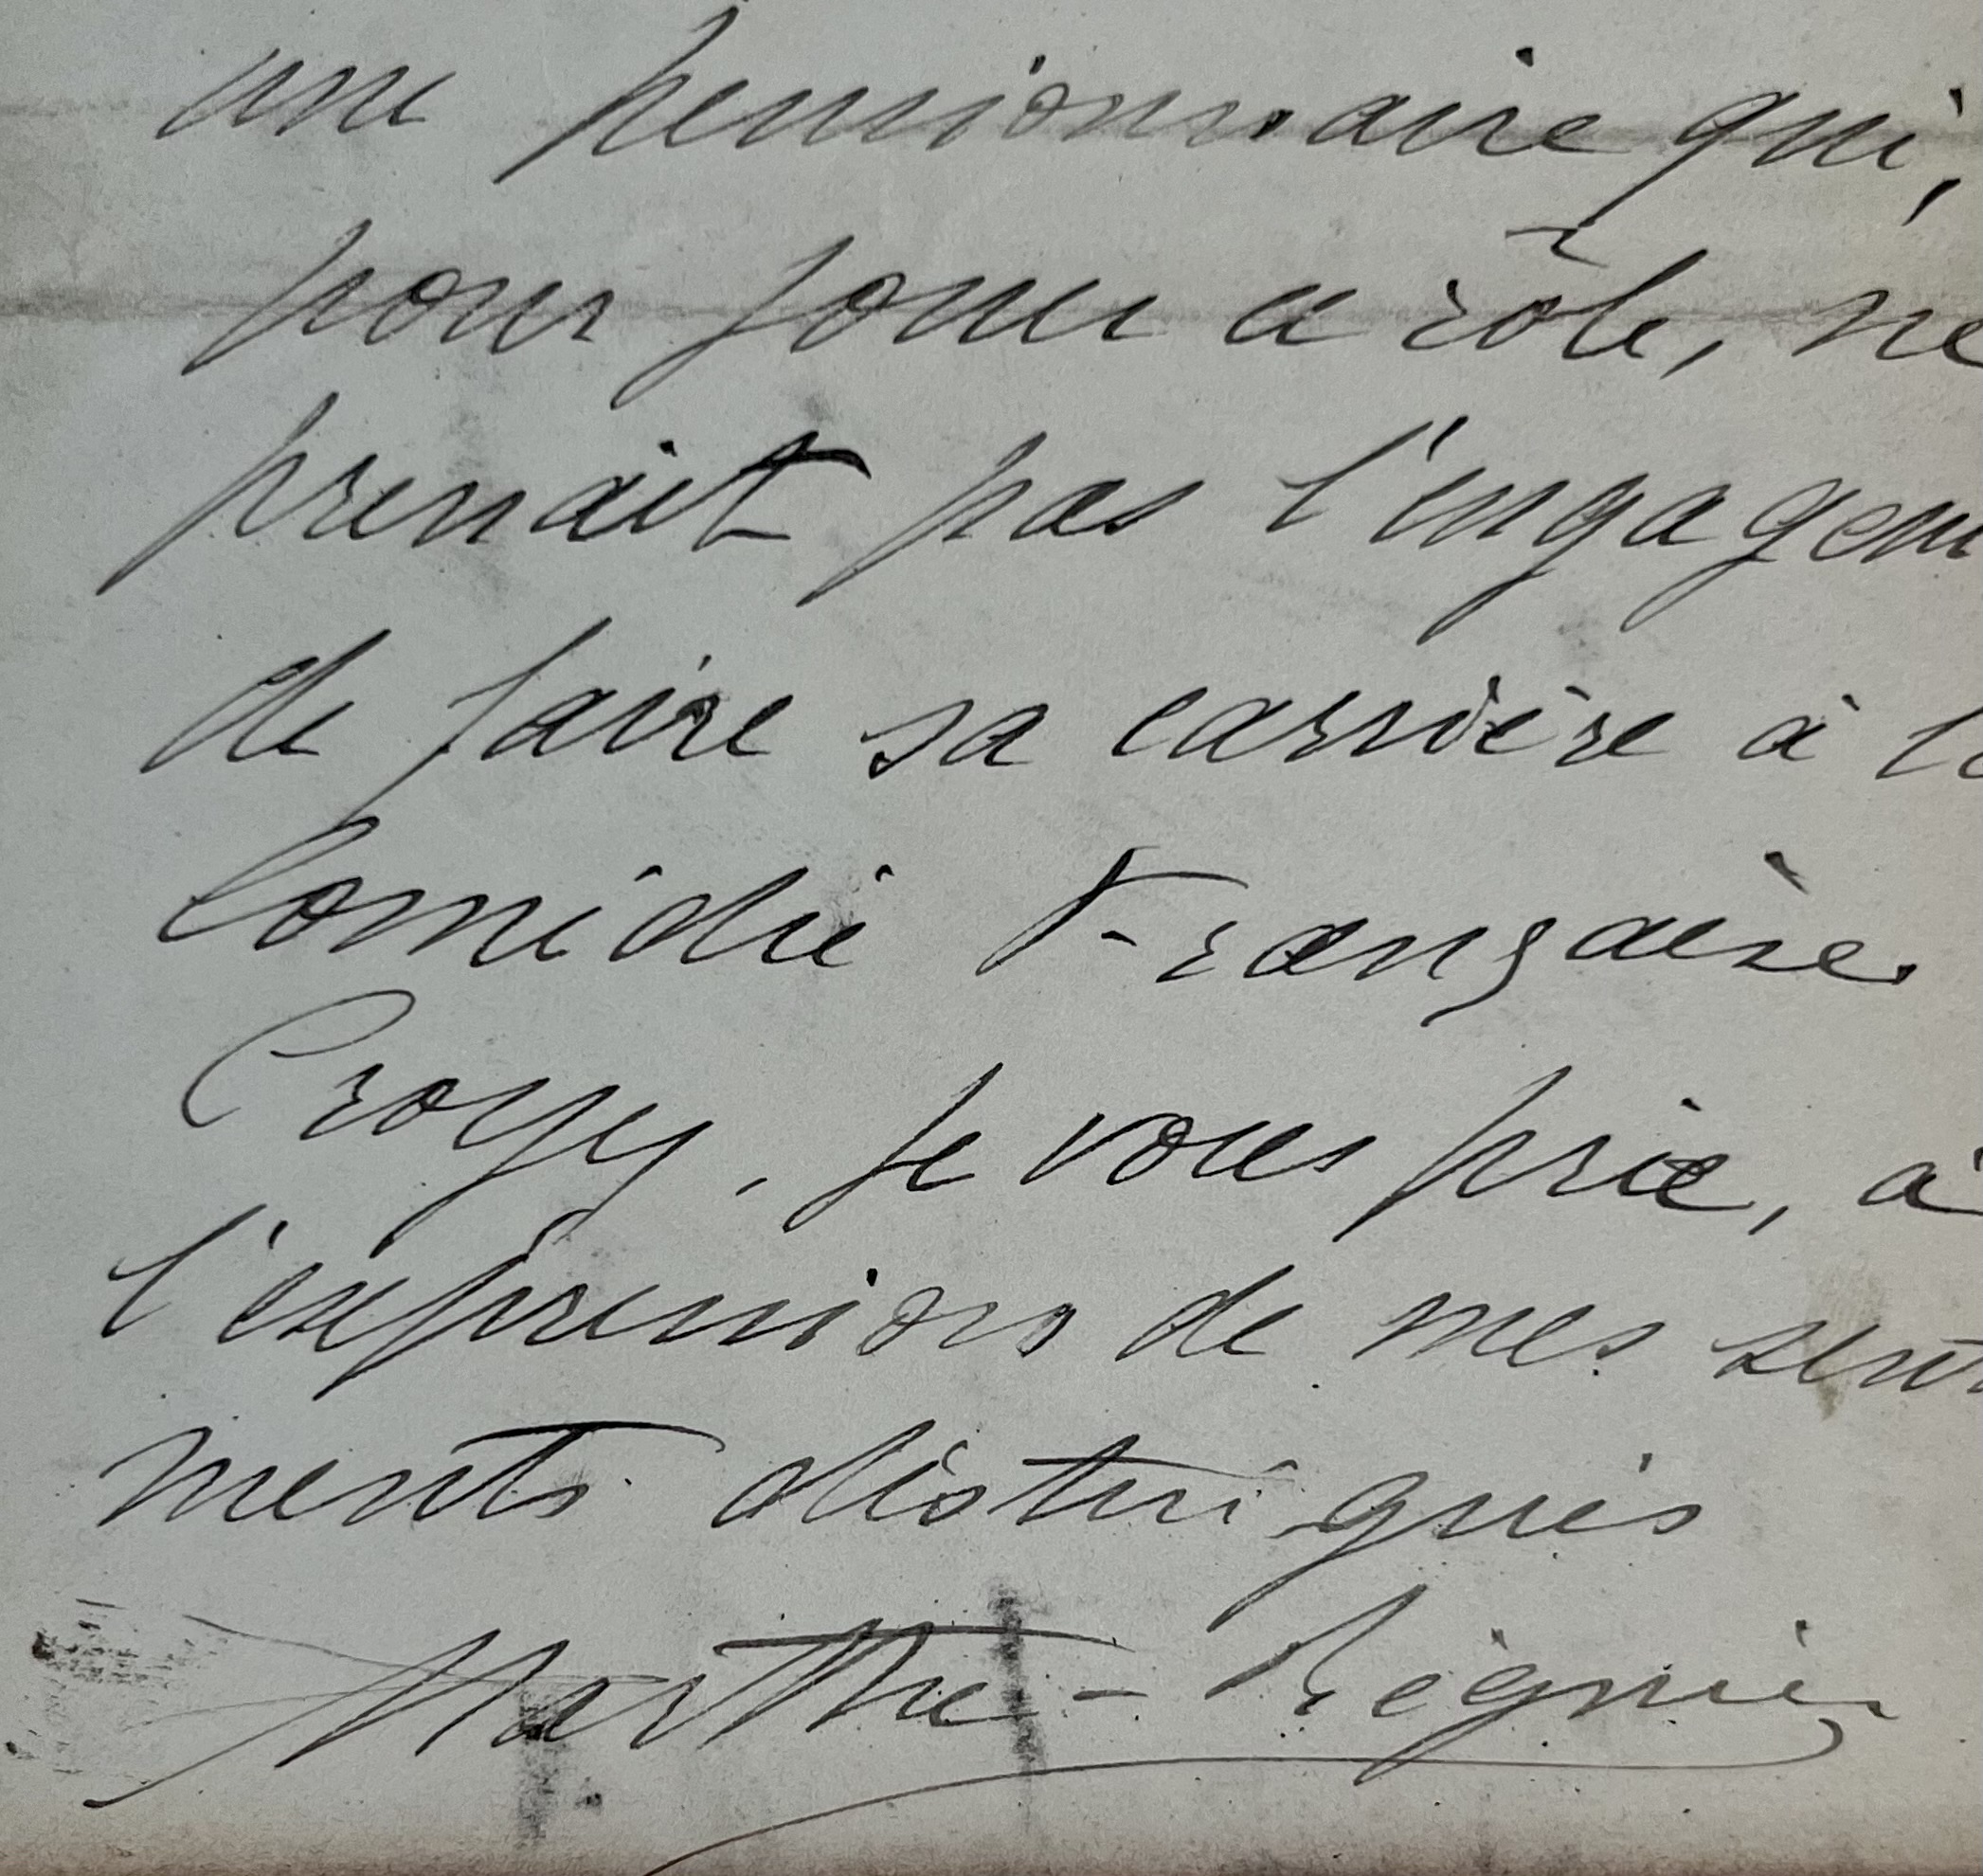 une pensionnaire qui,
pour jouer ce rôle, ne
prenait pas l'engagem
de faire sa carrière à la
Comédie Française.
Croyez, je vous prie, à
l'expression de mes senti
ments distingués
Marthe-Régnier